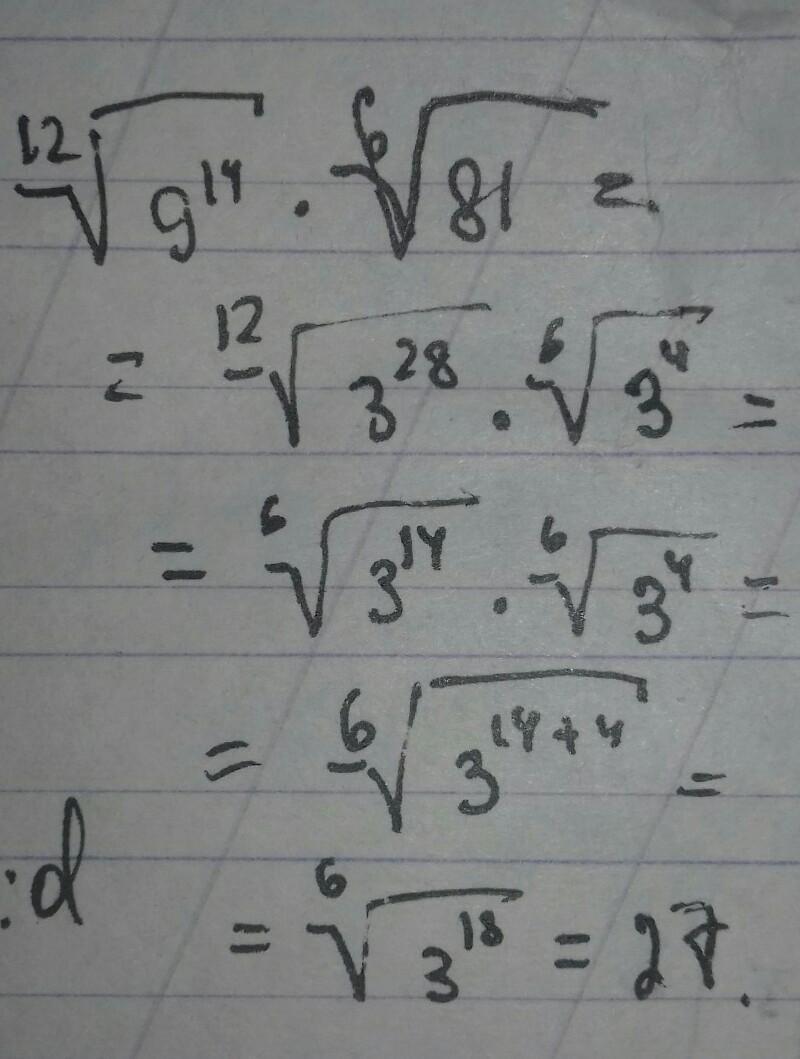 ¹²√9¹⁴ · ⁶√81 =
= ¹²√3²⁸ · ⁶√3⁴ =
= ⁶√3¹⁴ · ⁶√3⁴ =
= ⁶√3¹⁴⁺⁴ =
:d
= ⁶√3¹⁸ = 27.